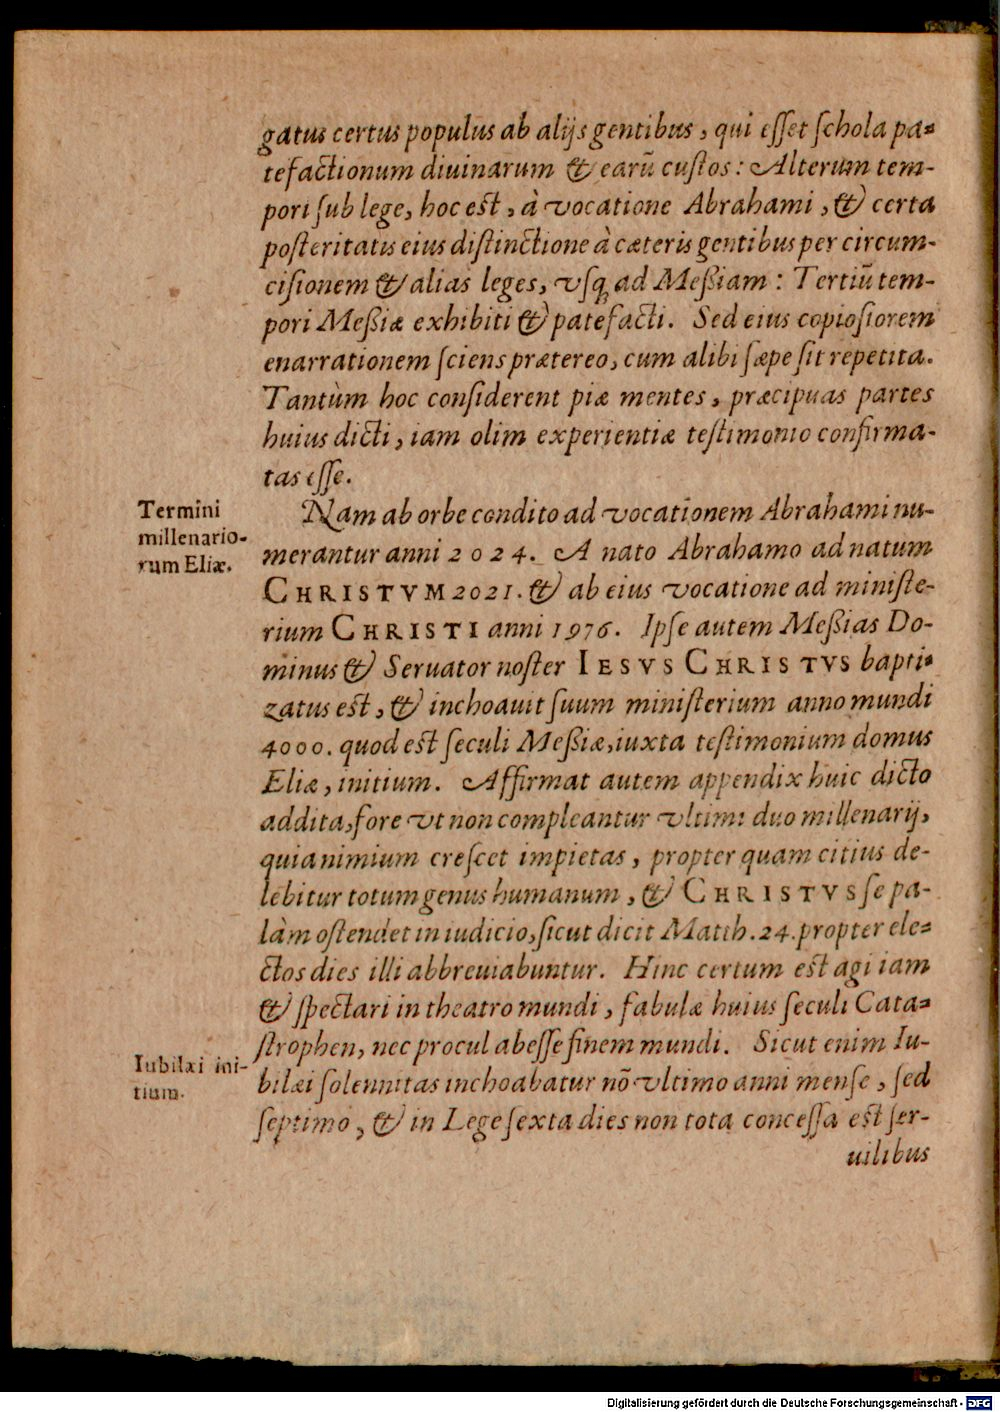 gatus certus populus ab alijs gentibus, qui esset schola pa-
tefactionum diuinarum & earũ custos: Alterum tem-
pori sub lege, hoc est, à vocatione Abrahami, & certa
posteritatis eius distinctione à cæteris gentibus per circum-
cisionem & alias leges, vsq; ad Meßiam: Tertiũ tem-
pori Meßiæ exhibiti & patefacti. Sed eius copiosiorem
enarrationem sciens prætereo, cum alibi sæpe sit repetita.
Tantùm hoc considerent piæ mentes, præcipuas partes
huius dicti, iam olim experientiæ testimonio confirma-
tas esse.
Termini
millenario-
rum Eliæ.
Nam ab orbe condito ad vocationem Abrahami nu-
merantur anni 2024. A nato Abrahamo ad natum
CHRISTVM 2021. & ab eius vocatione ad ministe-
rium CHRISTI anni 1976. Ipse autem Meßias Do-
minus & Seruator noster IESVS CHRISTVS bapti-
zatus est, & inchoauit suum ministerium anno mundi
4000. quod est seculi Meßiæ, iuxta testimonium domus
Eliæ, initium. Affirmat autem appendix huic dicto
addita, fore vt non compleantur vltimi duo millenarij,
quia nimium crescet impietas, propter quam citius de-
lebitur totum genus humanum, & CHRISTVS se pa-
làm ostendet in iudicio, sicut dicit Matth. 24. propter ele-
ctos dies illi abbreuiabuntur. Hinc certum est agi iam
& spectari in theatro mundi, fabulæ huius seculi Cata-
strophen, nec procul abesse finem mundi. Sicut enim Iu-
Iubilæi ini-
tium.
bilæi solennitas inchoabatur nõ vltimo anni mense, sed
septimo, & in Lege sexta dies non tota concessa est ser-
uilibus
Digitalisierung gefördert durch die Deutsche Forschungsgemeinschaft - DFG